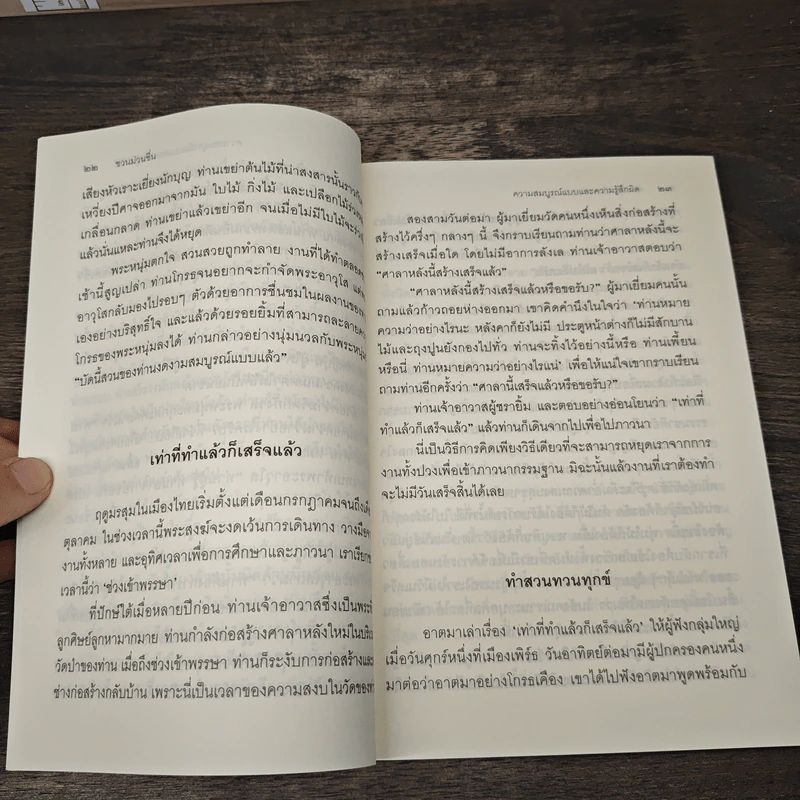 ๒๒ ชวนม่วนชื่น
เสียงหัวเราะเยี่ยงนักบุญ ท่านเขย่าต้นไม้ที่น่าสงสารนั้นราวกับ
เหวี่ยงปีศาจออกมาจากมัน ใบไม้ กิ่งไม้ และเปลือกไม้ร่วงหล่น
เกลื่อนกลาด ท่านเขย่าแล้วเขย่าอีก จนเมื่อไม่มีใบไม้จะร่วง
แล้วนั่นแหละท่านจึงได้หยุด
พระหนุ่มตกใจ สวนสวยถูกทำลาย งานที่ได้ทำตลอด
เช้านี้สูญเปล่า ท่านโกรธจนอยากจะกำจัดพระอาวุโส แต่
อาวุโสกลับมองไปรอบๆ ตัวด้วยอาการชื่นชมในผลงานของ
เองอย่างบริสุทธิ์ใจ และแล้วด้วยรอยยิ้มที่สามารถละลายความ
โกรธของพระหนุ่มลงได้ ท่านกล่าวอย่างนุ่มนวลกับพระหนุ่ม
“บัดนี้สวนของท่านงดงามสมบูรณ์แบบแล้ว”
เท่าที่ทำแล้วก็เสร็จแล้ว
ฤดูมรสุมในเมืองไทยเริ่มตั้งแต่เดือนกรกฎาคมจนถึงเดือน
ตุลาคม ในช่วงเวลานี้พระสงฆ์จะงดเว้นการเดินทาง วางมือจาก
งานทั้งหลาย และอุทิศเวลาเพื่อการศึกษาและภาวนา เราเรียก
เวลานี้ว่า ‘ช่วงเข้าพรรษา’
ที่ปักษ์ใต้เมื่อหลายปีก่อน ท่านเจ้าอาวาสซึ่งเป็นพระที่
ลูกศิษย์ลูกหามากมาย ท่านกำลังก่อสร้างศาลาหลังใหม่ในบริเวณ
วัดป่าของท่าน เมื่อถึงช่วงเข้าพรรษา ท่านก็ระงับการก่อสร้างและ
ช่างก่อสร้างกลับบ้าน เพราะนี่เป็นเวลาของความสงบในวัดของ
ความสมบูรณ์แบบและความรู้สึกผิด ๒๓
สองสามวันต่อมา ผู้มาเยี่ยมวัดคนหนึ่งเห็นสิ่งก่อสร้างที่
สร้างไว้ครึ่งๆ กลางๆ นี้ จึงกราบเรียนถามท่านว่าศาลาหลังนี้จะ
สร้างเสร็จเมื่อใด โดยไม่มีอาการลังเล ท่านเจ้าอาวาสตอบว่า
“ศาลาหลังนี้สร้างเสร็จแล้ว”
“ศาลาหลังนี้สร้างเสร็จแล้วหรือขอรับ?” ผู้มาเยี่ยมคนนั้น
ถามแล้วก้าวถอยห่างออกมา เขาคิดคำนึงในใจว่า ‘ท่านหมาย
ความว่าอย่างไรนะ หลังคาก็ยังไม่มี ประตูหน้าต่างก็ไม่มีสักบาน
ไม้และถุงปูนยังกองไปทั่ว ท่านจะทิ้งไว้อย่างนี้หรือ ท่านเพี้ยน
หรือนี่ ท่านหมายความว่าอย่างไรแน่’ เพื่อให้แน่ใจเขากราบเรียน
ถามท่านอีกครั้งว่า “ศาลานี้เสร็จแล้วหรือขอรับ?”
ท่านเจ้าอาวาสผู้ชรายิ้ม และตอบอย่างอ่อนโยนว่า “เท่าที่
ทำแล้วก็เสร็จแล้ว” แล้วท่านก็เดินจากไปเพื่อไปภาวนา
นี่เป็นวิธีการคิดเพียงวิธีเดียวที่จะสามารถหยุดเราจากการ
งานทั้งปวงเพื่อเข้าภาวนากรรมฐาน มิฉะนั้นแล้วงานที่เราต้องทำ
จะไม่มีวันเสร็จสิ้นได้เลย
ทำสวนทวนทุกข์
อาตมาเล่าเรื่อง ‘เท่าที่ทำแล้วก็เสร็จแล้ว’ ให้ผู้ฟังกลุ่มใหญ่
เมื่อวันศุกร์หนึ่งที่เมืองเพิร์ธ วันอาทิตย์ต่อมามีผู้ปกครองคนหนึ่ง
มาต่อว่าอาตมาอย่างโกรธเคือง เขาได้ไปฟังอาตมาพูดพร้อมกับ